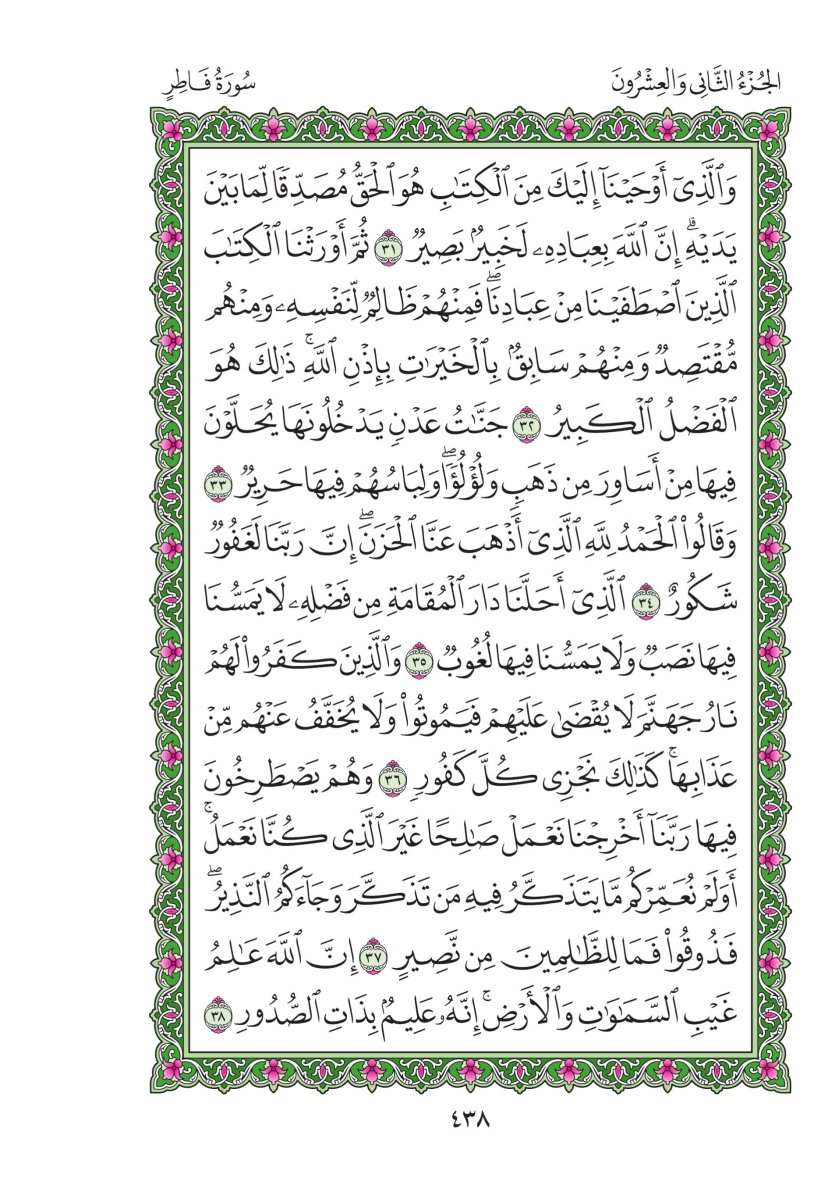 الجُزْءُ الثَّانِي وَالعِشْرُونَ
سُورَةُ فَاطِرٍ
وَٱلَّذِىٓ أَوْحَيْنَآ إِلَيْكَ مِنَ ٱلْكِتَـٰبِ هُوَ ٱلْحَقُّ مُصَدِّقًا لِّمَا بَيْنَ
يَدَيْهِۗ إِنَّ ٱللَّهَ بِعِبَادِهِۦ لَخَبِيرٌۢ بَصِيرٌ ٣١ ثُمَّ أَوْرَثْنَا ٱلْكِتَـٰبَ
ٱلَّذِينَ ٱصْطَفَيْنَا مِنْ عِبَادِنَاۖ فَمِنْهُمْ ظَالِمٌ لِّنَفْسِهِۦ وَمِنْهُم
مُّقْتَصِدٌ وَمِنْهُمْ سَابِقٌۢ بِٱلْخَيْرَٰتِ بِإِذْنِ ٱللَّهِۚ ذَٰلِكَ هُوَ
ٱلْفَضْلُ ٱلْكَبِيرُ ٣٢ جَنَّـٰتُ عَدْنٍ يَدْخُلُونَهَا يُحَلَّوْنَ
فِيهَا مِنْ أَسَاوِرَ مِن ذَهَبٍ وَلُؤْلُؤًاۖ وَلِبَاسُهُمْ فِيهَا حَرِيرٌ ٣٣
وَقَالُوا۟ ٱلْحَمْدُ لِلَّهِ ٱلَّذِىٓ أَذْهَبَ عَنَّا ٱلْحَزَنَۖ إِنَّ رَبَّنَا لَغَفُورٌ
شَكُورٌ ٣٤ ٱلَّذِىٓ أَحَلَّنَا دَارَ ٱلْمُقَامَةِ مِن فَضْلِهِۦ لَا يَمَسُّنَا
فِيهَا نَصَبٌ وَلَا يَمَسُّنَا فِيهَا لُغُوبٌ ٣٥ وَٱلَّذِينَ كَفَرُوا۟ لَهُمْ
نَارُ جَهَنَّمَ لَا يُقْضَىٰ عَلَيْهِمْ فَيَمُوتُوا۟ وَلَا يُخَفَّفُ عَنْهُم مِّنْ
عَذَابِهَاۚ كَذَٰلِكَ نَجْزِى كُلَّ كَفُورٍ ٣٦ وَهُمْ يَصْطَرِخُونَ
فِيهَا رَبَّنَآ أَخْرِجْنَا نَعْمَلْ صَـٰلِحًا غَيْرَ ٱلَّذِى كُنَّا نَعْمَلُۚ
أَوَلَمْ نُعَمِّرْكُم مَّا يَتَذَكَّرُ فِيهِ مَن تَذَكَّرَ وَجَآءَكُمُ ٱلنَّذِيرُۖ
فَذُوقُوا۟ فَمَا لِلظَّـٰلِمِينَ مِن نَّصِيرٍ ٣٧ إِنَّ ٱللَّهَ عَـٰلِمُ
غَيْبِ ٱلسَّمَـٰوَٰتِ وَٱلْأَرْضِۚ إِنَّهُۥ عَلِيمٌۢ بِذَاتِ ٱلصُّدُورِ ٣٨
٤٣٨